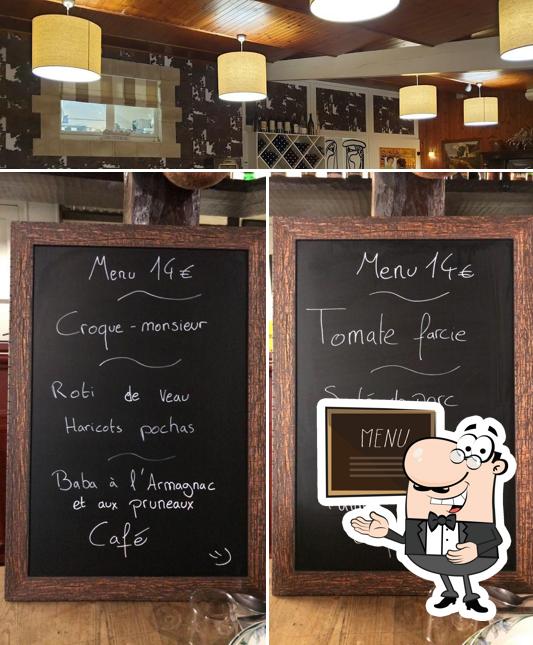 Menu 14€
Croque-monsieur
Roti de veau
Haricots pochas
Baba à l'Armagnac
et aux pruneaux
Café
Menu 14€
Tomate farcie
MENU